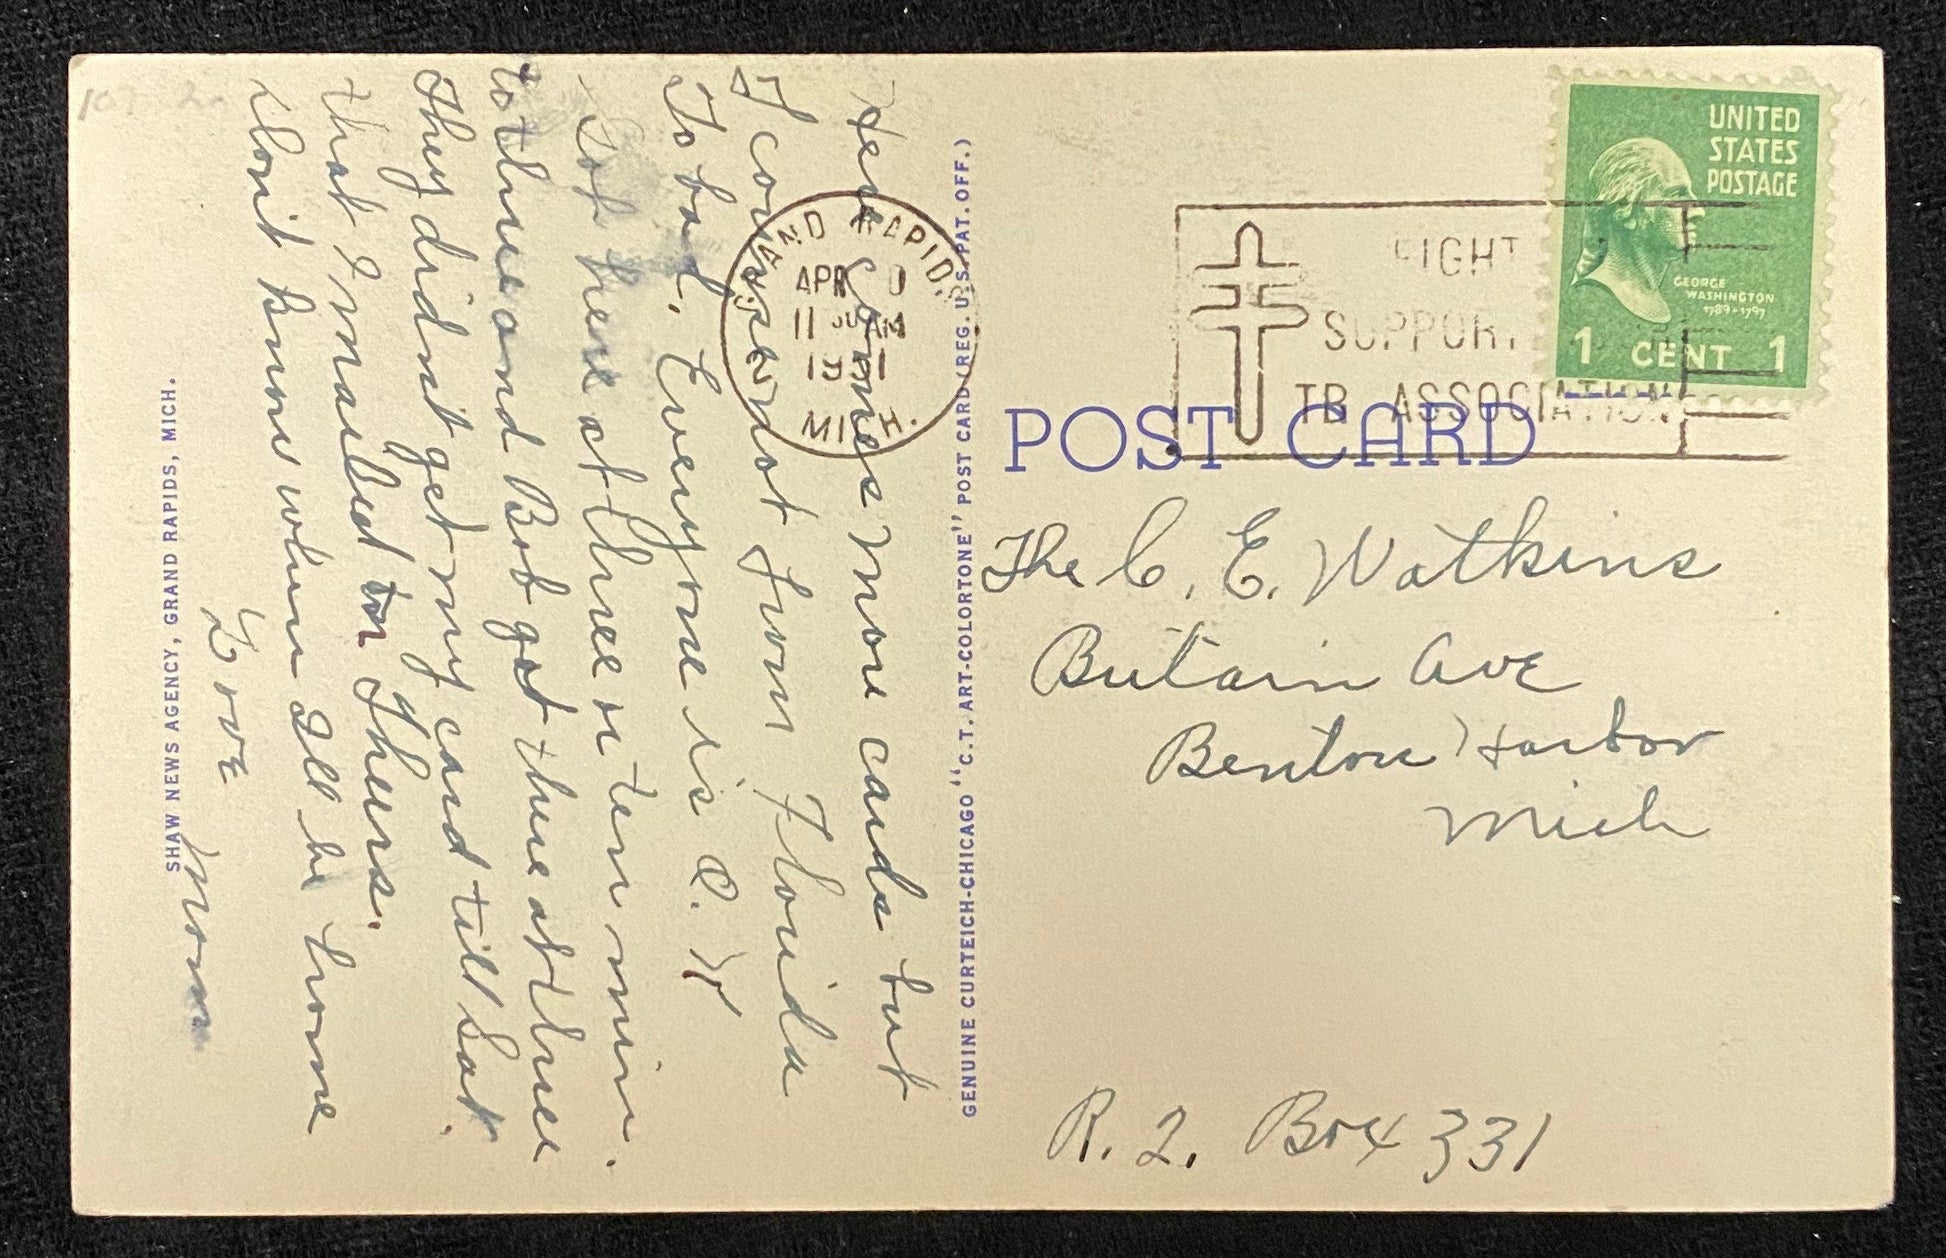 Here comes more cards but
of course not from Florida
To bad. Everyone is O.K
Got here at three or ten min.
to three and Bob got there at three
They didn't get my card till Sat.
that I mailed on Thurs.
don't know when I'll be home
Love
Mom
SHAW NEWS AGENCY, GRAND RAPIDS, MICH.
GENUINE CURTEICH-CHICAGO "C.T. ART-COLORTONE" POST CARD (REG. U.S. PAT. OFF.)
GRAND RAPIDS
APR
11 AM
MICH.
FIGHT
SUPPORT
TB ASSOCIATION
UNITED
STATES
POSTAGE
GEORGE
WASHINGTON
1789-1797
1 CENT 1
POST CARD
The C. E. Watkins
Britain Ave
Benton Harbor
Mich
R. 2. Box 331